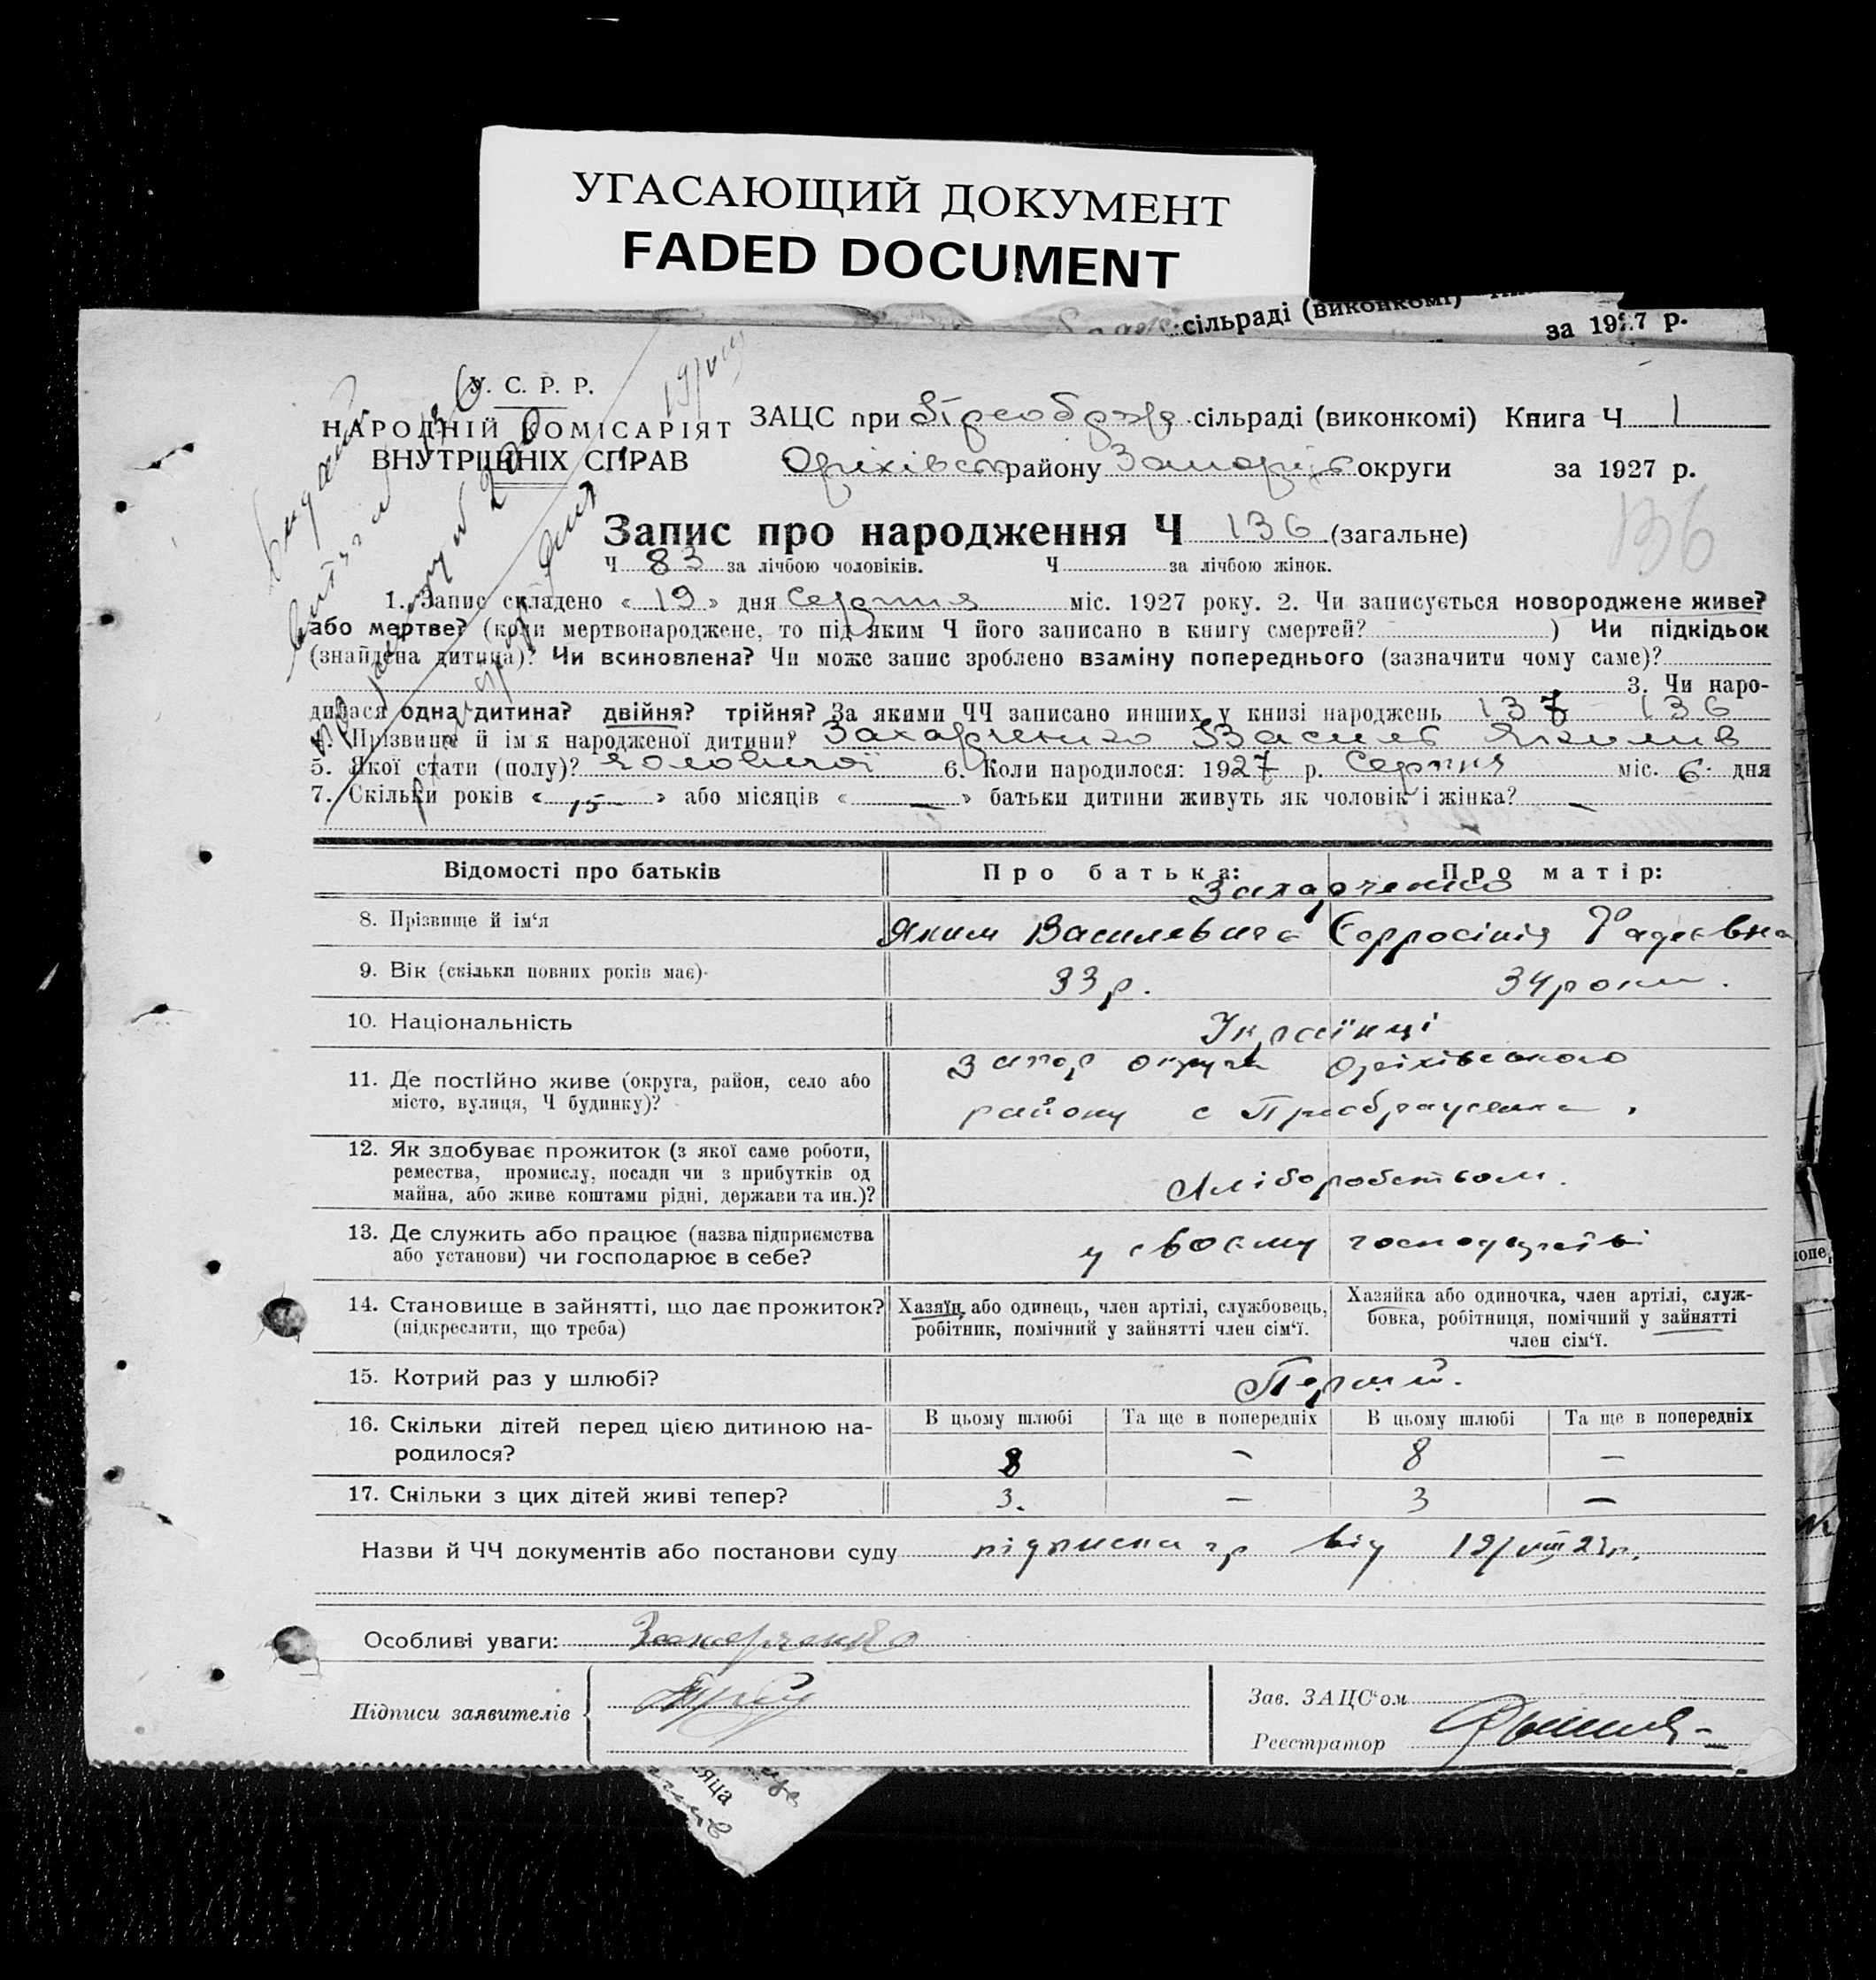 УГАСАЮЩИЙ ДОКУМЕНТ
FADED DOCUMENT
сільраді (виконкомі)
за 1927 р.
У. С. Р. Р.
НАРОДНІЙ КОМІСАРІЯТ
ВНУТРІШНІХ СПРАВ
19/VIII
ЗАЦС при Преображ. сільраді (виконкомі) Книга Ч 1
Оріхівськ району Запоріз округи за 1927 р.
136
Запис про народження Ч 136 (загальне)
Ч 83 за лічбою чоловіків. Ч за лічбою жінок.
1. Запис складено « 19 » дня Серпня міс. 1927 року. 2. Чи записується новороджене живе?
або мертве? (коли мертвонароджене, то під яким Ч його записано в книгу смертей? ) Чи підкідьок
(знайдена дитина)? Чи всиновлена? Чи може запис зроблено взаміну попереднього (зазначити чому саме)?
3. Чи наро-
дилася одна дитина? двійня? трійня? За якими ЧЧ записано инших у книзі народжень 137 - 136
4. Прізвище й ім'я народженої дитини? Захарченко Василь Якимів
5. Якої стати (полу)? чоловічої 6. Коли народилося: 1927 р. Серпня міс. 6 дня
7. Скільки років « 15 » або місяців « — » батьки дитини живуть як чоловік і жінка? —
Відомості про батьків Про батька: Про матір:
Захарченко
8. Прізвище й ім'я Яким Василевич Єфросінія Фадеєвна
9. Вік (скільки повних років має) 33 р. 34 роки.
10. Національність Українці
11. Де постійно живе (округа, район, село або Запор округи Оріхівського
місто, вулиця, Ч будинку)? району с Преображенка.
12. Як здобуває прожиток (з якої саме роботи,
ремества, промислу, посади чи з прибутків од
майна, або живе коштами рідні, держави та ин.)? Хліборобством.
13. Де служить або працює (назва підприємства
або установи) чи господарює в себе? у своєму господарстві
14. Становище в зайнятті, що дає прожиток? Хазяїн, або одинець, член артілі, службовець, Хазяйка або одиночка, член артілі, служ-
(підкреслити, що треба) робітник, помічний у зайнятті член сім'ї. бовка, робітниця, помічний у зайнятті
член сім'ї.
15. Котрий раз у шлюбі? Перший.
16. Скільки дітей перед цією дитиною на- В цьому шлюбі Та ще в попередніх В цьому шлюбі Та ще в попередніх
родилося? 8 — 8 —
17. Скільки з цих дітей живі тепер? 3. — 3 —
Назви й ЧЧ документів або постанови суду підписка гр від 19/VIII 27 р.
Особливі уваги: Захарченко
Підписи заявителів
Зав. ЗАЦС'ом
Реєстратор